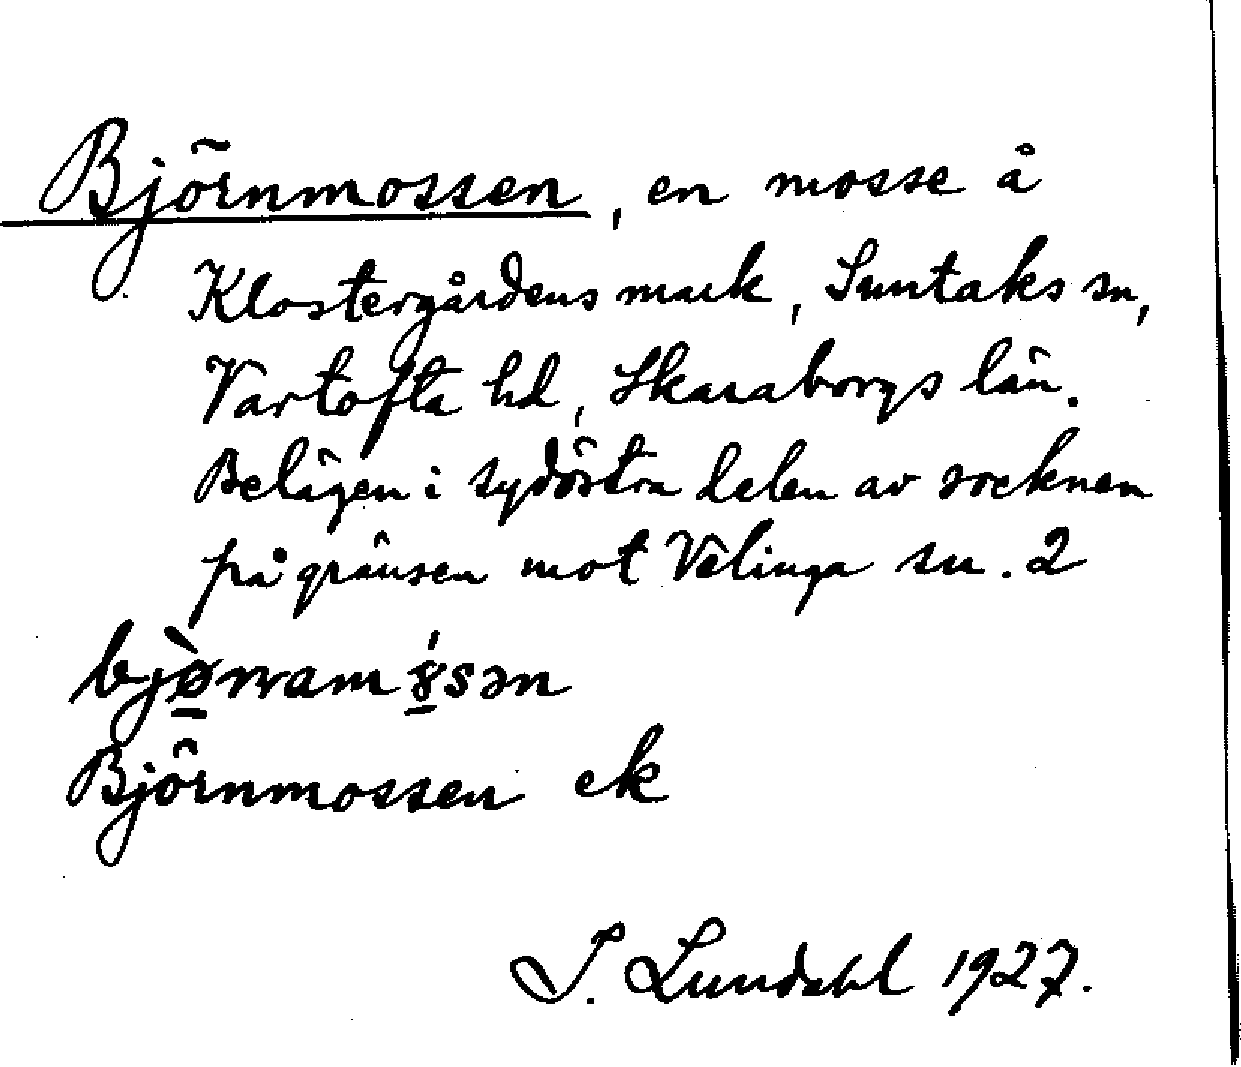 Björnmossen, en mosse å
Klostergårdens mark, Suntaks sn,
Vartofta hd, Skaraborgs län.
Belägen i sydöstra delen av socknen
på gränsen mot Välinga sn. 2
Björnmossen ek
I. Lundahl 1927.